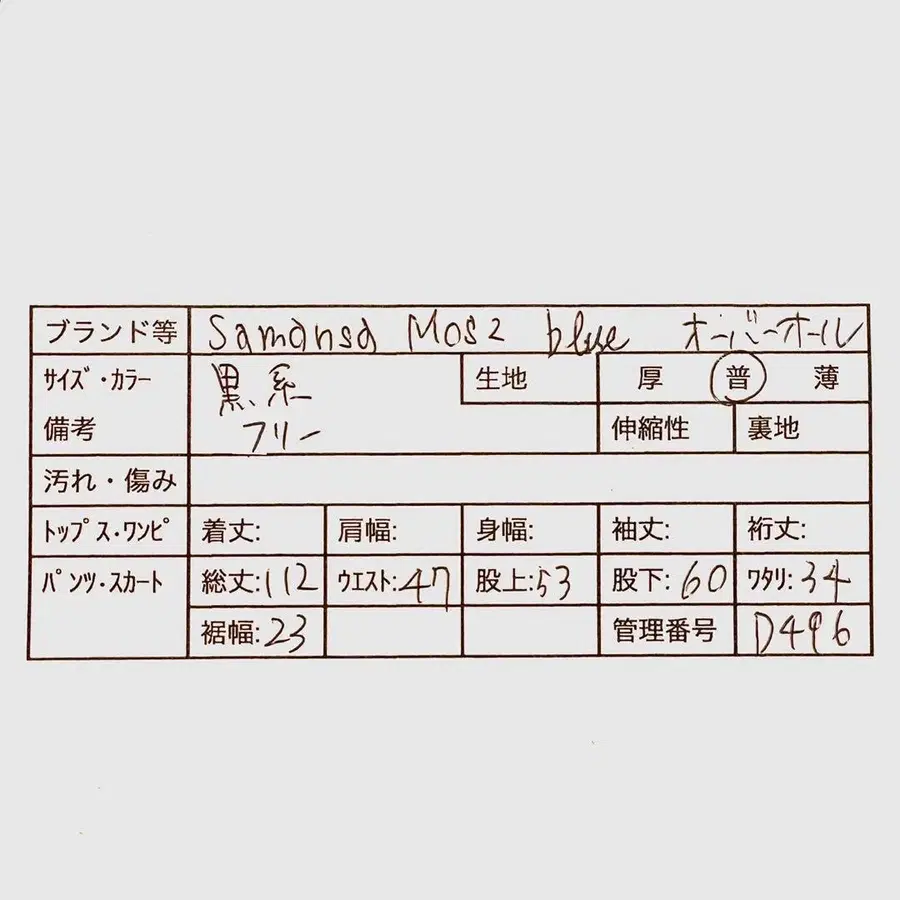 ブランド等 Samansa Mos2 blue オーバーオール
サイズ・カラー 黒系 生地 厚 普 薄
備考 フリー 伸縮性 裏地
汚れ・傷み
トップス・ワンピ 着丈: 肩幅: 身幅: 袖丈: 裄丈:
パンツ・スカート 総丈:112 ウエスト:47 股上:53 股下:60 ワタリ:34
裾幅:23 管理番号 D496